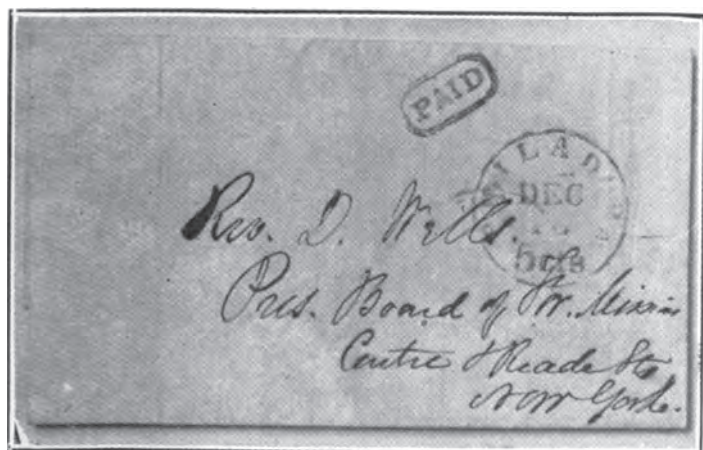 PAID
PHILADELPHIA
DEC
5 cts
Rev. D. Wells.
Pres. Board of For. Missions
Centre & Reade Sts
New York.